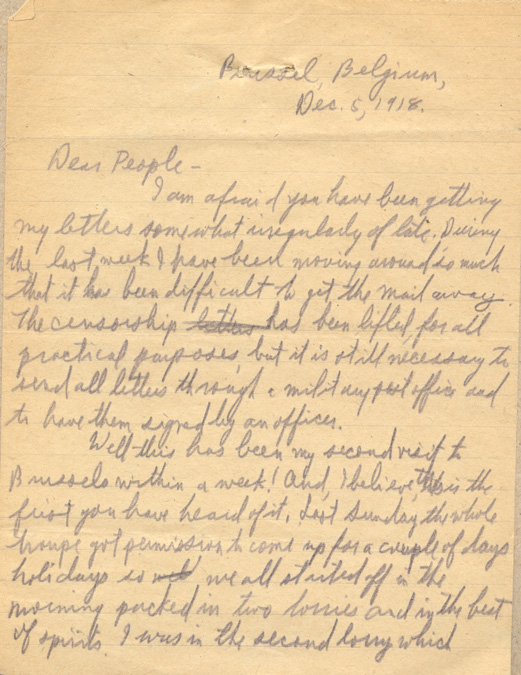 Brussel, Belgium,
Dec. 5, 1918.
Dear People -
I am afraid you have been getting
my letters somewhat irregularly of late. During
the last week I have been moving around so much
that it has been difficult to get the mail away.
The censorship letters has been lifted for all
practical purposes, but it is still necessary to
send all letters through a military post office and
to have them signed by an officer.
Well this has been my second visit to
Brussels within a week! And, I believe, this is the
first you have heard of it. Last Sunday the whole
troupe got permission to come up for a couple of days
holidays so we all started off in the
morning packed in two lorries and in the best
of spirits. I was in the second lorry which